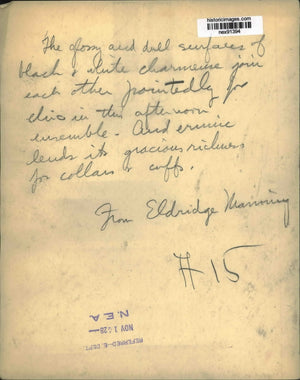 historicimages.com
nex91394
The glossy and dull surfaces of
black & white charmeuse join
each other pointedly for
chic in this afternoon
ensemble. And ermine
lends its gracious richness
for collar & cuffs.
From Eldridge Manning
# 15
REFERRED-E. DEPT.
NOV 1 1928
N.E.A.